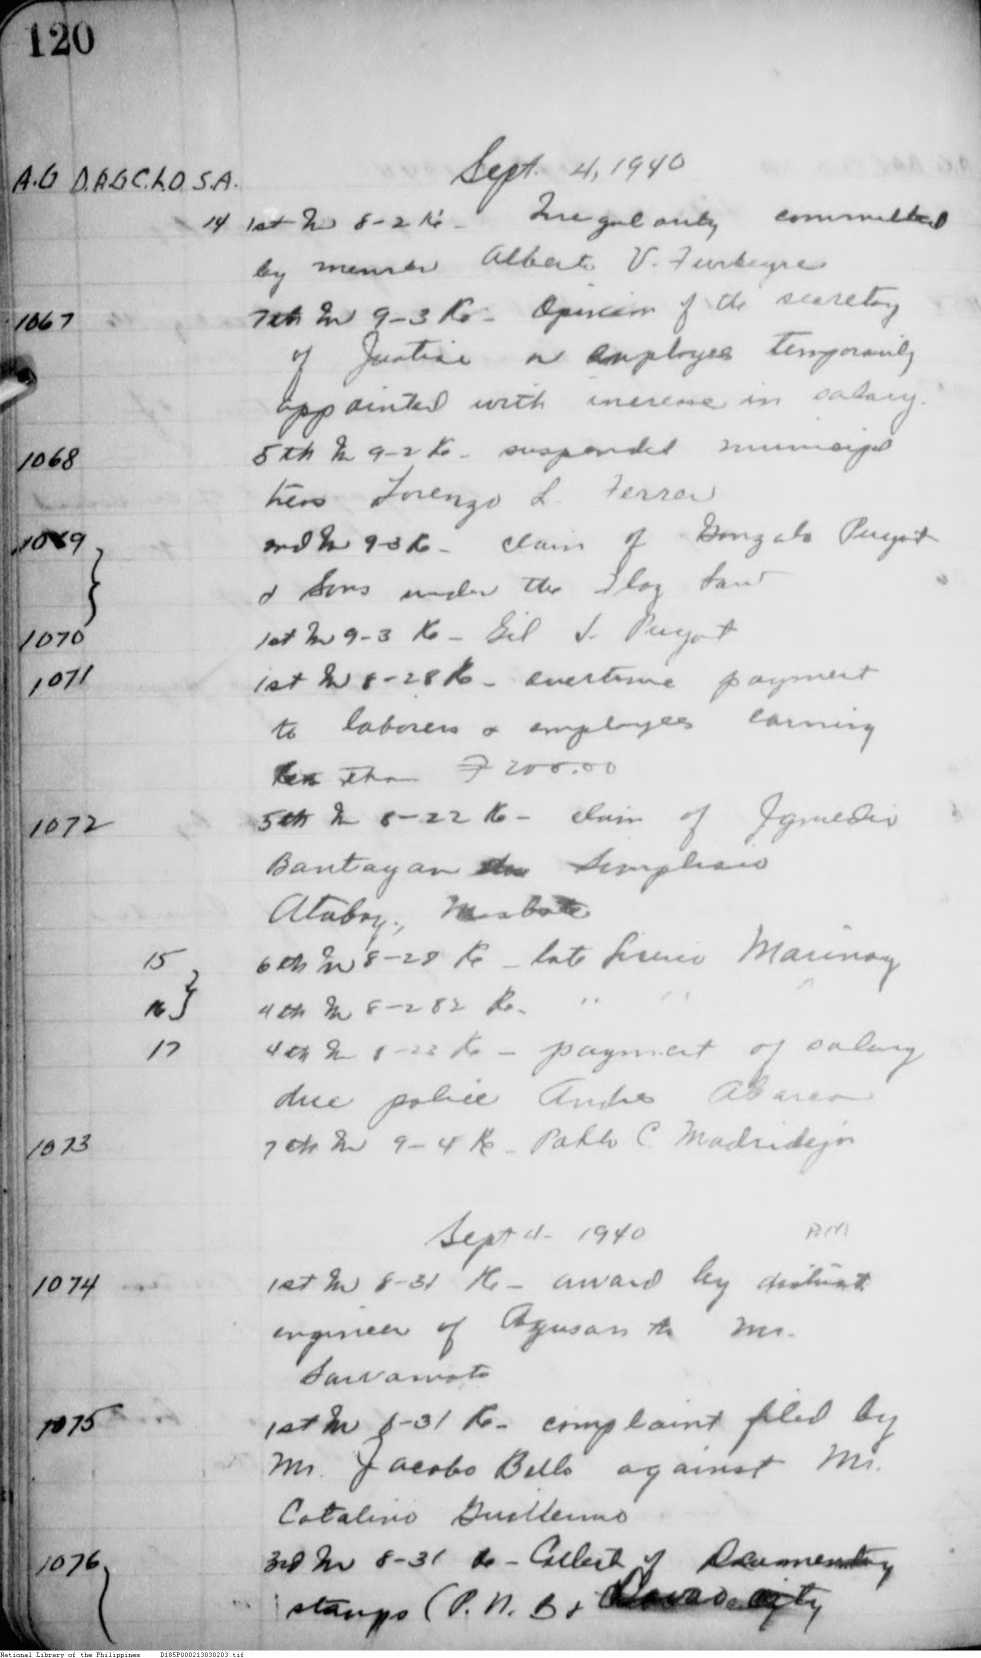 120
Sept. 4, 1940
A.G D.AGC.L.O S.A.
14 1st In 8-2 Ke - Irregularity committed
by Alberto V.
1067 7th In 9-3 Ke - Opinion of the secretary
of Justice on employees temporarily
appointed with increase in salary.
1068 5th In 9-2 Ke - suspended municipal
treas Lorenzo L. Ferrer
1069 2nd In 9-3 Ke - claim of Gonzalo Puyat
& Sons under the Flag Law
1070 1st In 9-3 Ke - Gil J. Puyat
1071 1st In 8-28 Ke - overtime payment
to laborers & employees earning
less than ₱200.00
1072 5th In 8-22 Ke - claim of
Bantayan Simplicio
Atabay, Masbate
15 6th In 8-28 Ke - late Marinay
16 4th In 8-282 Ke. " " "
17 4th In 8-22 Ke - payment of salary
due police Andres
1073 7th In 9-4 Ke - Pablo C. Madridejos
Sept 4 - 1940 P.M.
1074 1st In 8-31 Ke - award by district
engineer of Agusan to Mr.
Sawamoto
1075 1st In 8-31 Ke - complaint filed by
Mr. Jacobo Bello against Mr.
Catalino Guillermo
1076 3rd In 8-31 Ke - Collect of Documentary
stamps (P. N. B & Davao City
National Library of the Philippines D185P000213030203.tif